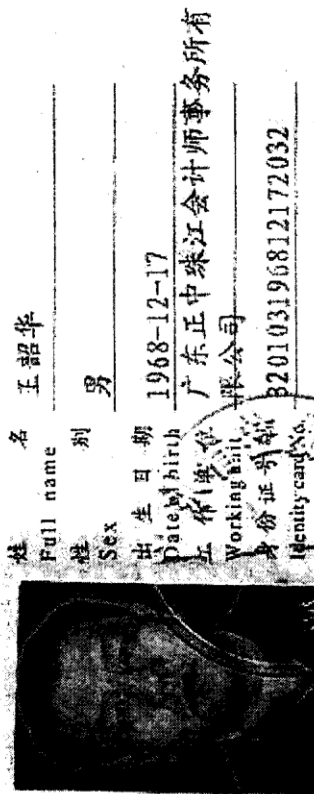 姓 名 王韶华
Full name
性 别 男
Sex
出 生 日 期 1968-12-17
Date of birth
工 作 单 位 广东正中珠江会计师事务所有
Working unit 限公司
身 份 证 号 码 320103196812172032
Identity card No.